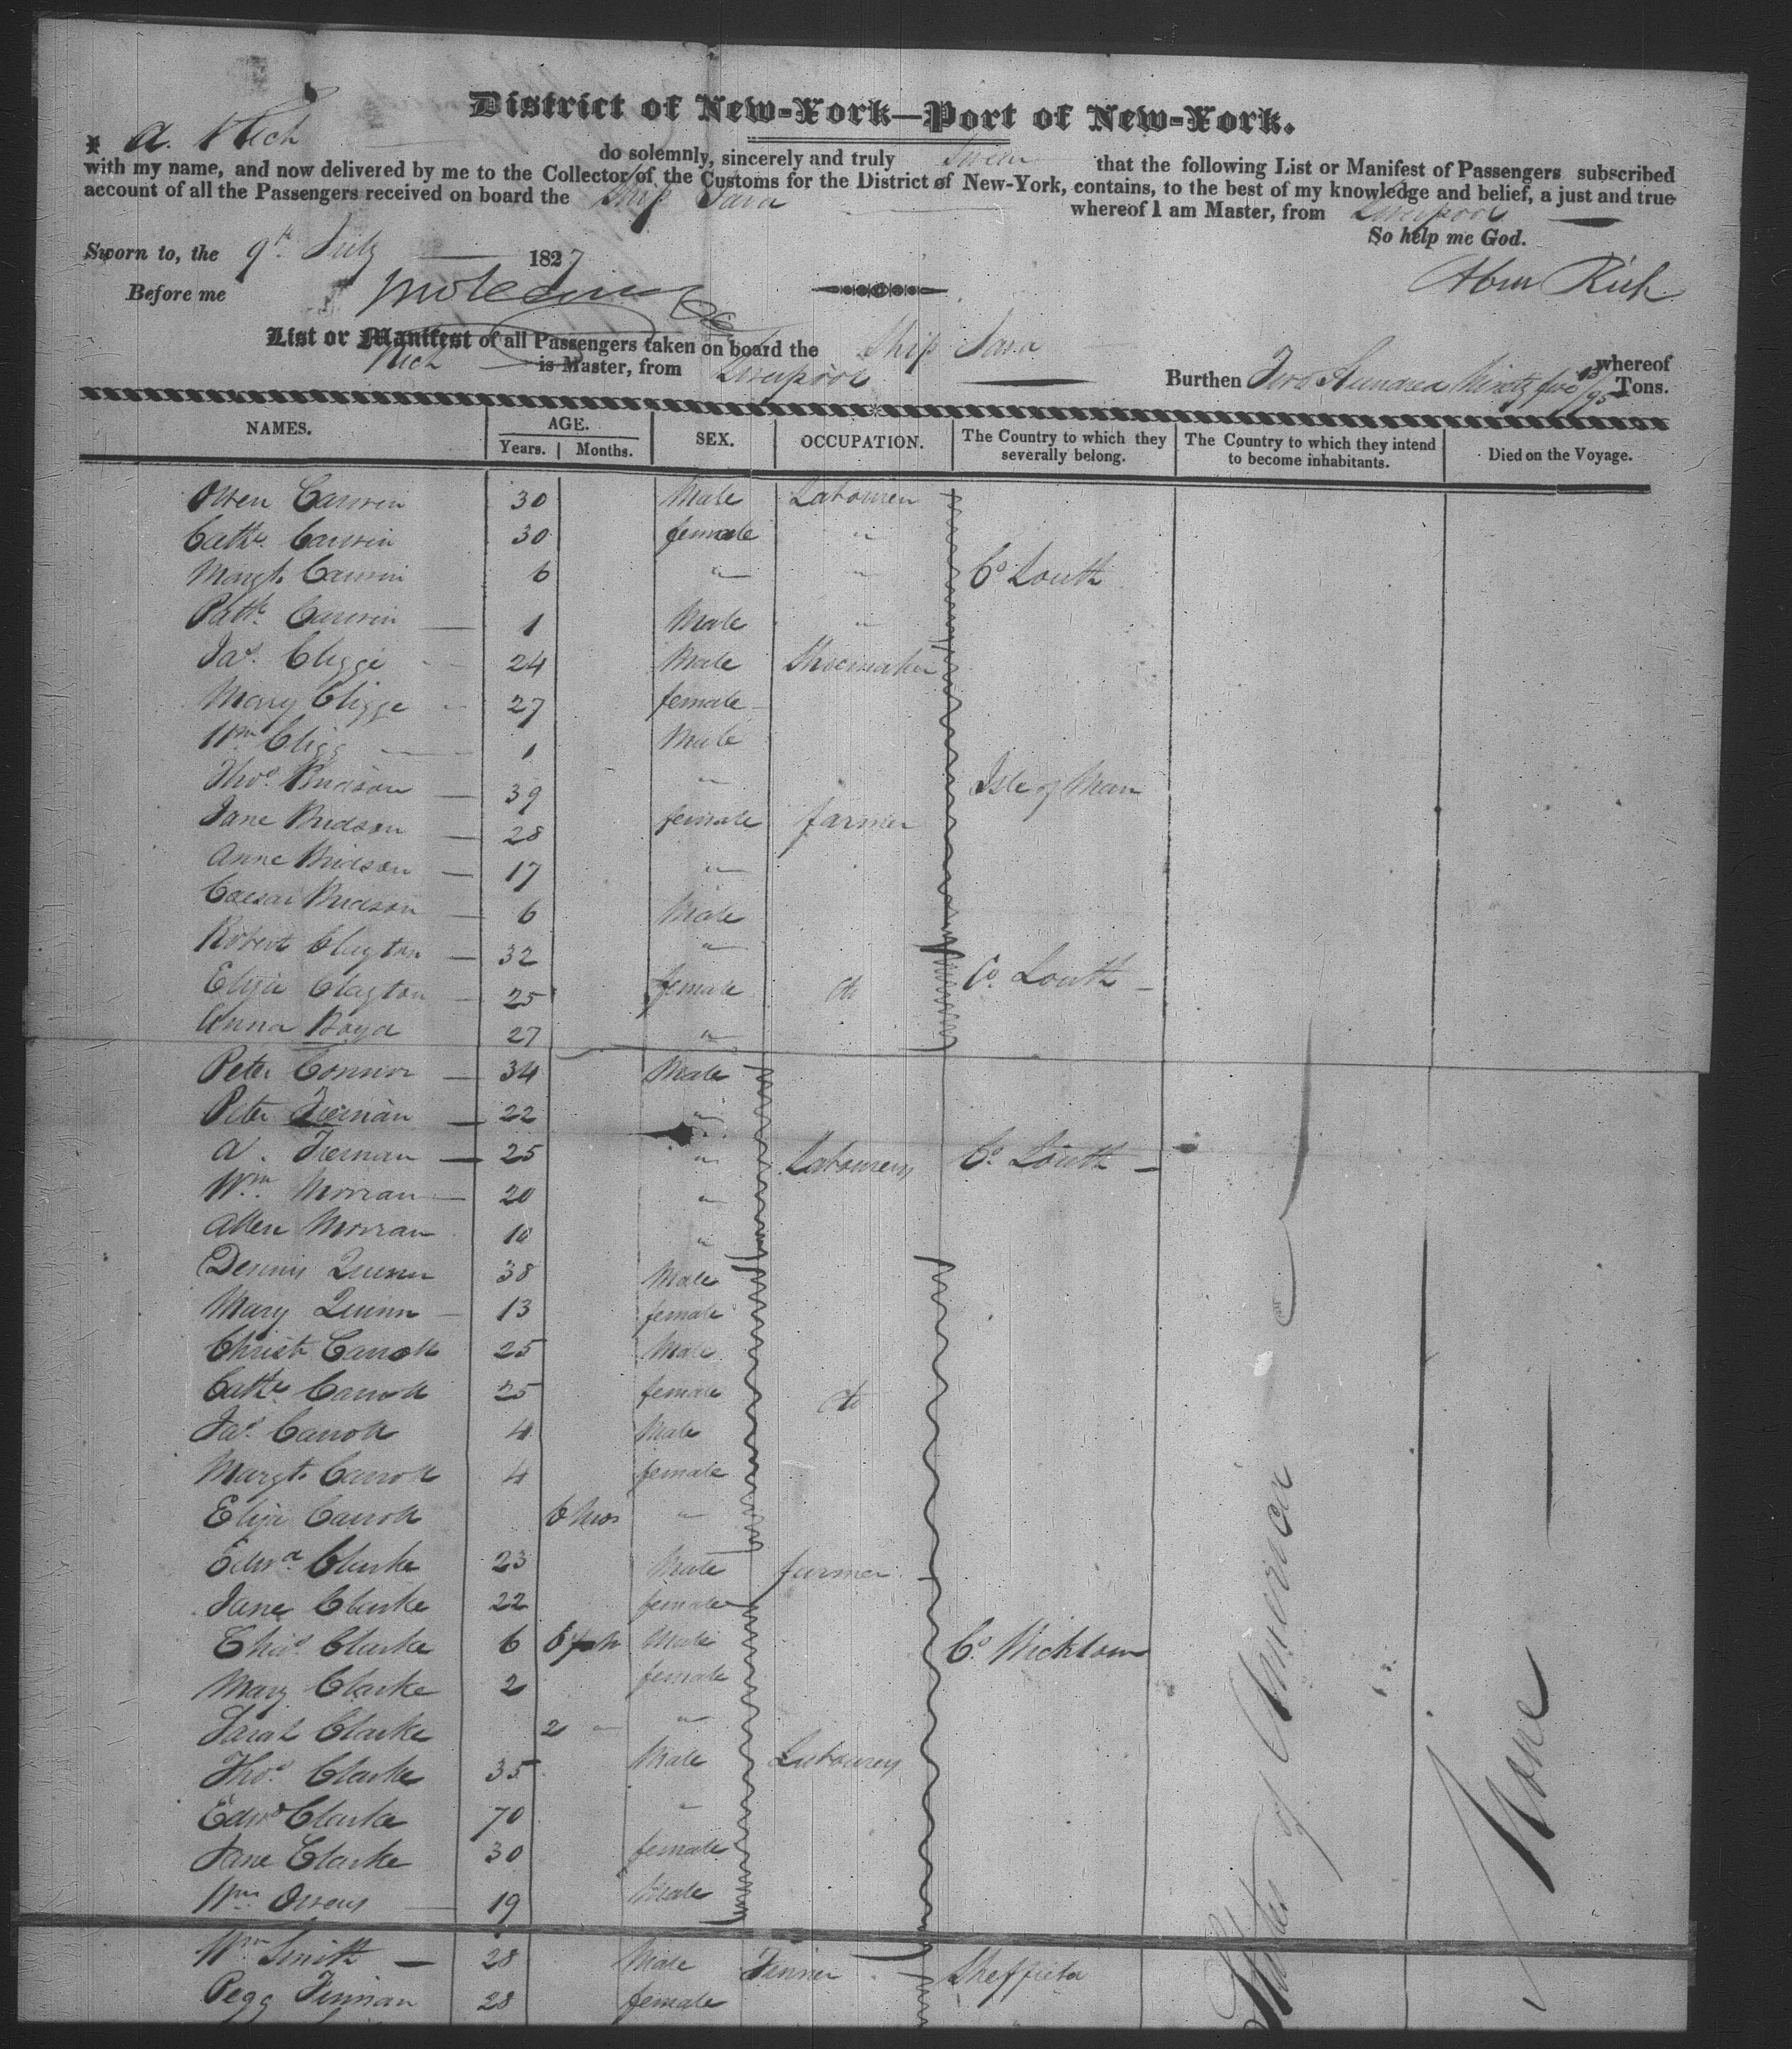 District of New-York—Port of New-York.
I A. Rich do solemnly, sincerely and truly Swear that the following List or Manifest of Passengers subscribed
with my name, and now delivered by me to the Collector of the Customs for the District of New-York, contains, to the best of my knowledge and belief, a just and true
account of all the Passengers received on board the Ship whereof I am Master, from Liverpool
So help me God.
Sworn to, the 9th July 1827
Abm Rich
Before me
List or Manifest of all Passengers taken on board the Ship whereof
Rich is Master, from Liverpool Burthen Two Hundred Ninety five /95 Tons.
NAMES. AGE. SEX. OCCUPATION. The Country to which they severally belong. The Country to which they intend to become inhabitants. Died on the Voyage.
Years. Months.
Owen 30 Male Labourer
Cathe. 30 female "
Margt. 6 " " Co. Louth
Patk. 1 Male "
Jas. Cligge 24 Male Shoemaker
Mary Cligge 27 female
Wm Cligg 1 Male
Thos. 39 " Isle of Man
Jane 28 female farmer
Anne 17 "
Caesar 6 Male
Robert Clayton 32 "
Eliza Clayton 25 female do Co. Louth
Anna Boyd 27 "
Peter Connor 34 Male
Peter Tiernan 22 "
A. Tiernan 25 " Labourers Co. Louth
Wm. Morran 20 "
Allen Morran 10 "
Dennis Quinn 38 Male
Mary Quinn 13 female
Christ Carroll 25 Male
Cathe Carroll 25 female do
Jas. Carroll 4 Male
Margt. Carroll 4 female
Eliza Carroll 6 Mos "
Edwd. Clarke 23 Male farmer
Jane Clarke 22 female
Chas. Clarke 6 6 Male Co. Wicklow
Mary Clarke 2 female
Sarah Clarke 2 " "
Thos. Clarke 35 Male Labourers
Edwd Clarke 70 "
Jane Clarke 30 female
Wm. Owens 19 Male
Wm Smith 28 Male Sheffield
Pegg Tinnan 28 female
States of America
None